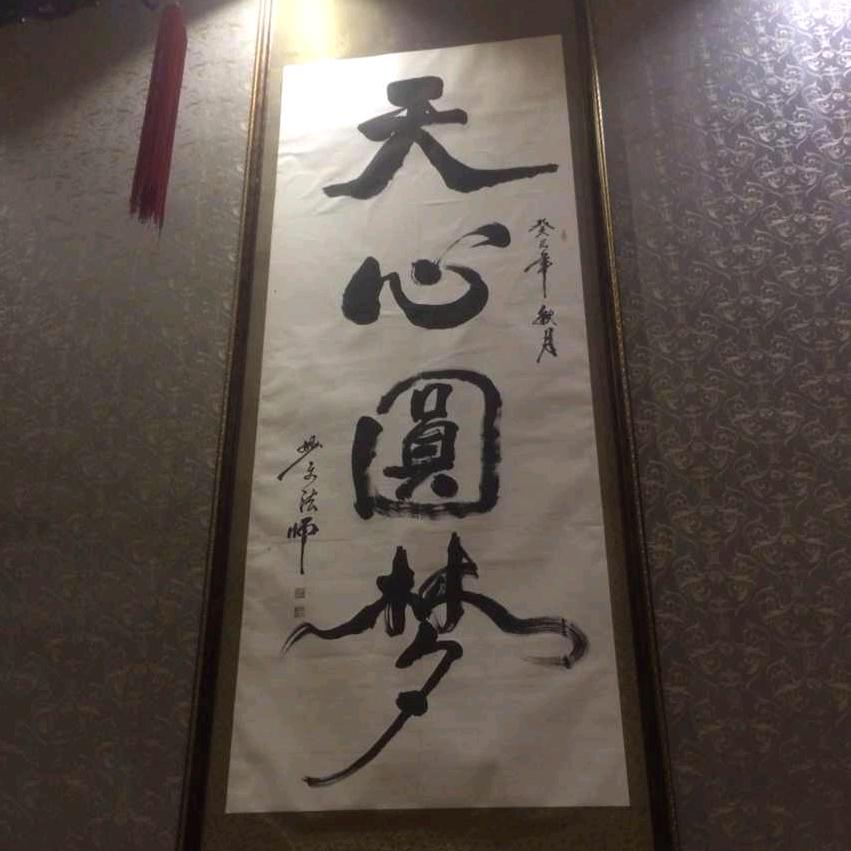 癸巳年 秋月
天心圓梦
妙文法师